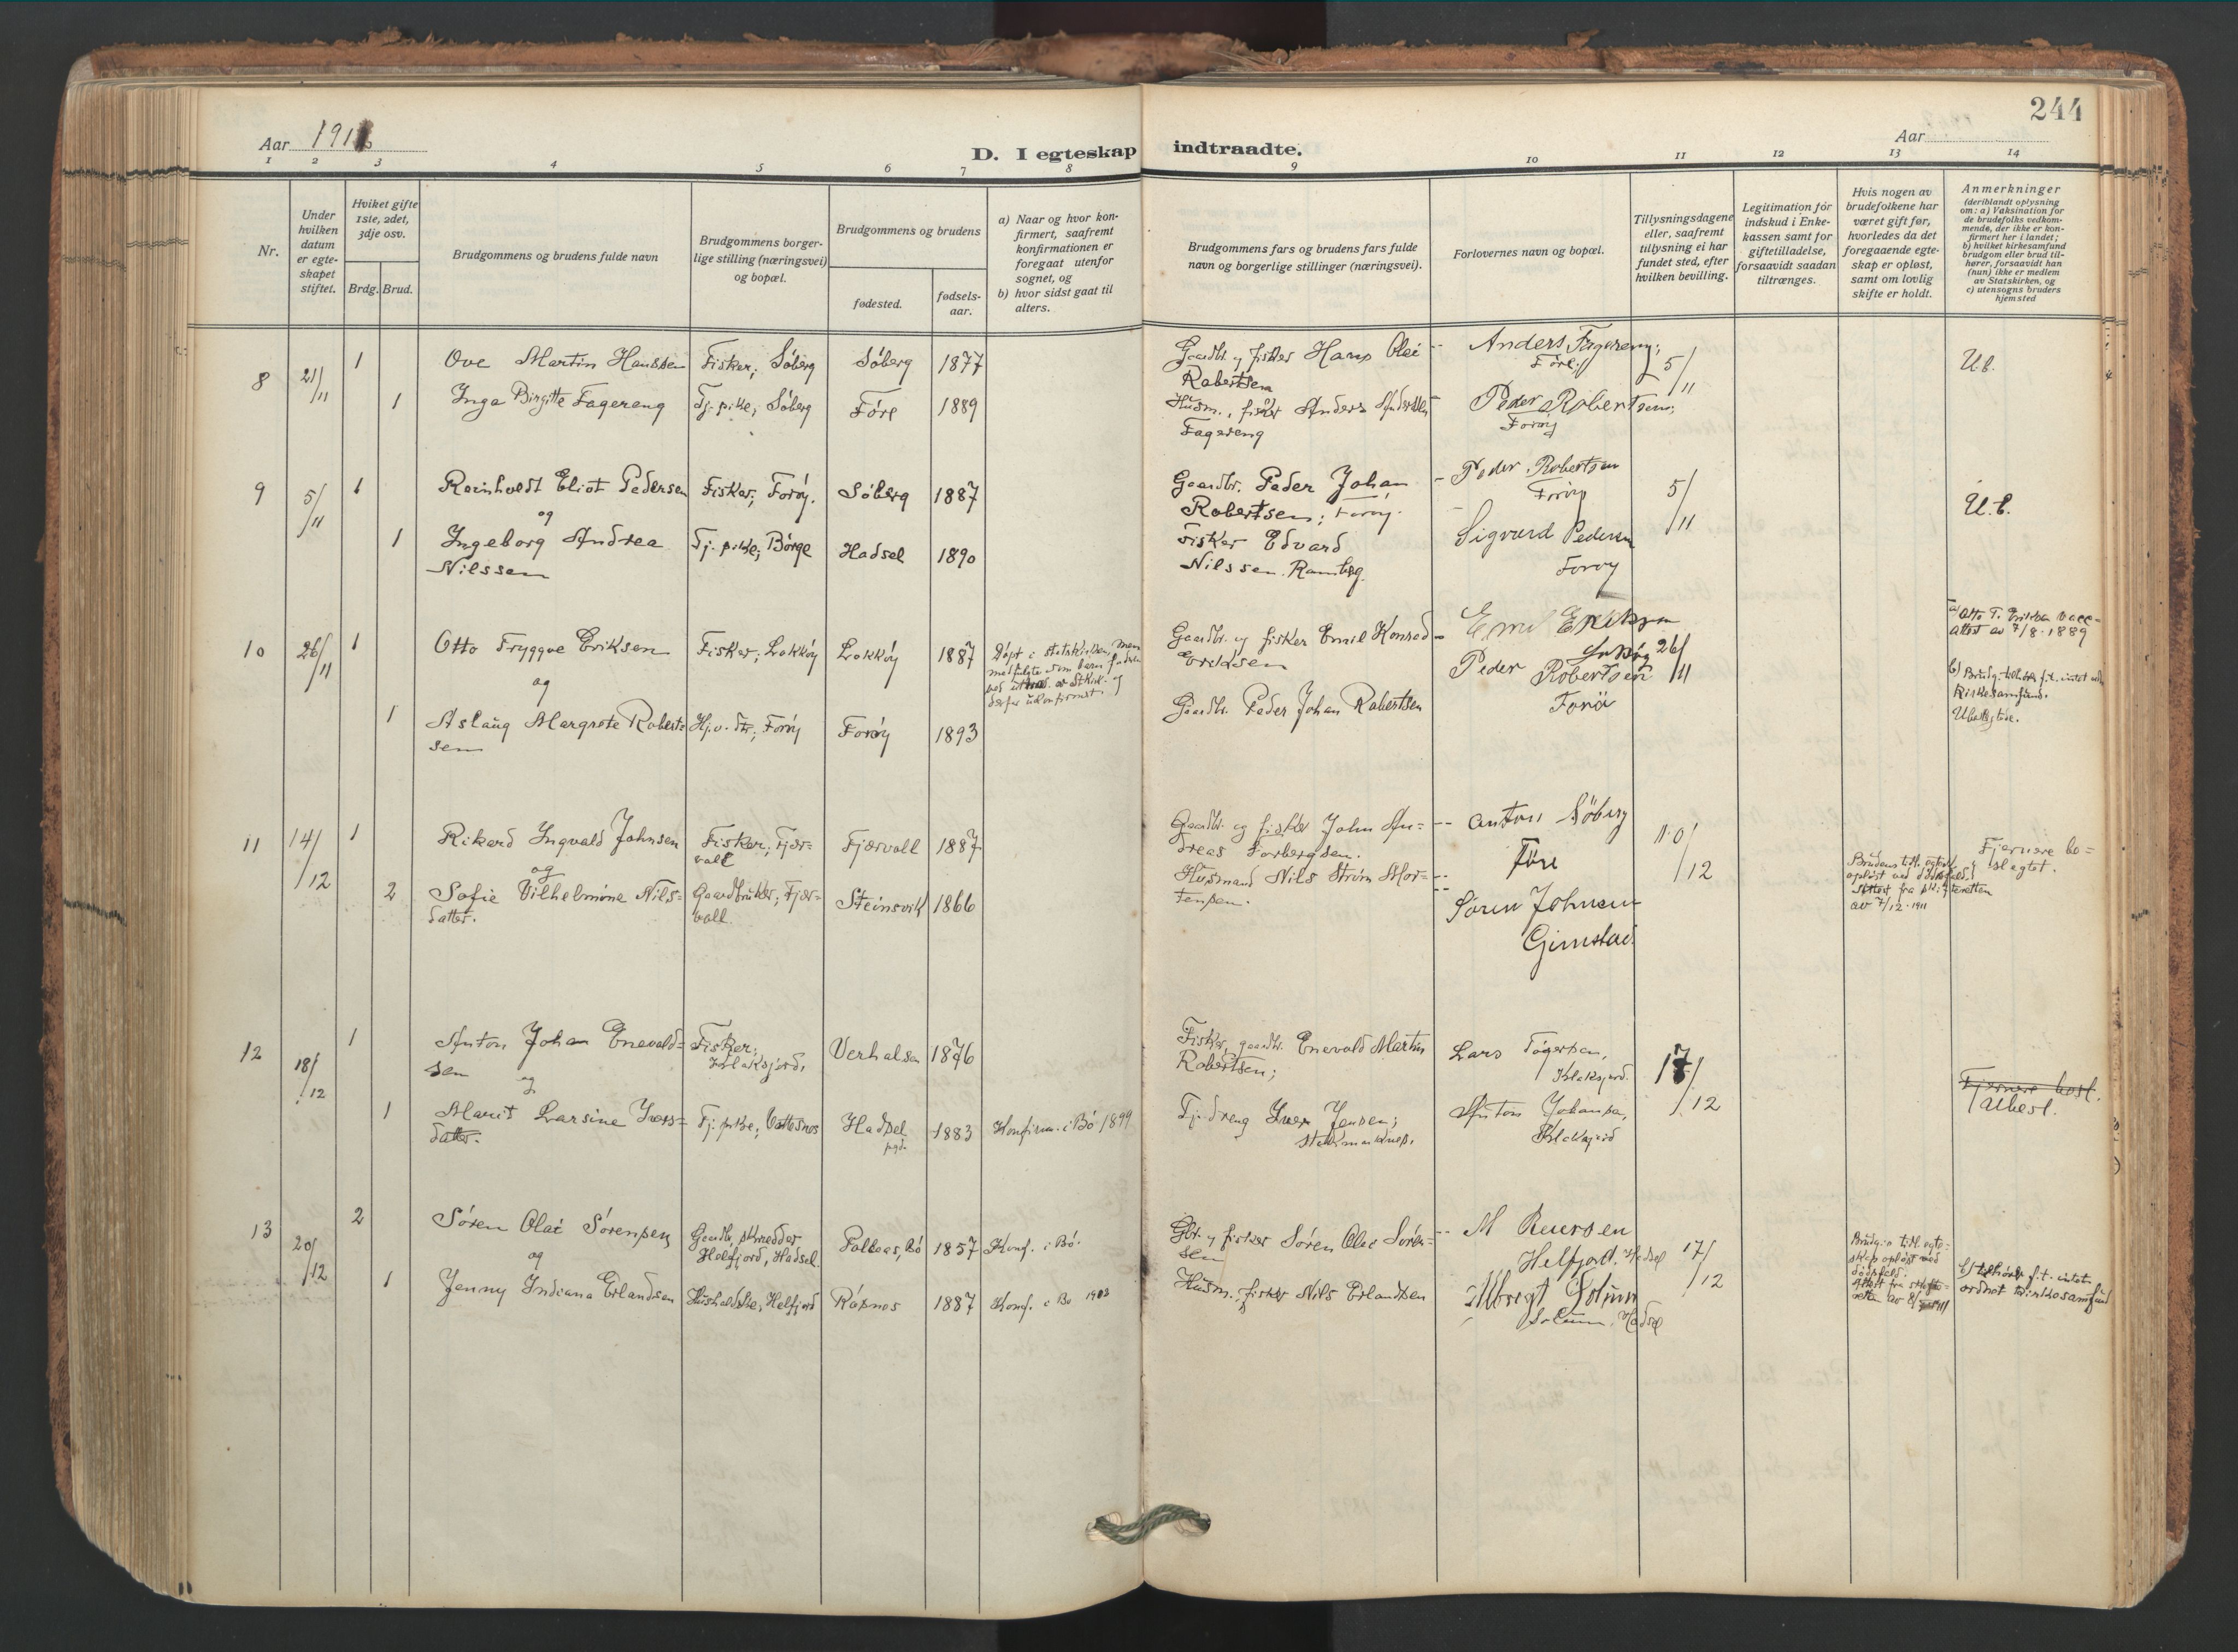 244
Aar 191
D. I egteskap indtraadte.
Aar
1 2 3 4 5 6 7 8 9 10 11 12 13 14
Nr.
Under hvilken datum er egteskapet stiftet.
Hviket gifte 1ste, 2det, 3dje osv.
Brdg. Brud.
Brudgommens og brudens fulde navn
Brudgommens borgerlige stilling (næringsvei) og bopæl.
Brudgommens og brudens
fødested.
fødsels-aar.
a) Naar og hvor konfirmert, saafremt konfirmationen er foregaat utenfor sognet, og
b) hvor sidst gaat til alters.
Brudgommens fars og brudens fars fulde navn og borgerlige stillinger (næringsvei).
Forlovernes navn og bopæl.
Tillysningsdagene eller, saafremt tillysning ei har fundet sted, efter hvilken bevilling.
Legitimation for indskud i Enkekassen samt for giftetilladelse, forsaavidt saadan tiltrænges.
Hvis nogen av brudefolkene har været gift før, hvorledes da det foregaaende egteskap er opløst, samt om lovlig skifte er holdt.
Anmerkninger
(deriblandt oplysning om: a) Vaksination for de brudefolks vedkommende, der ikke er konfirmert her i landet;
b) hvilket kirkesamfund brudgom eller brud tilhører, forsaavidt han (hun) ikke er medlem av Statskirken, og
c) utensogns bruders hjemsted
8 21/11 1 Ove Martin Hanssen Fisker; Søberg Søberg 1877
Gaardbr. og fisker Hans Olai Robertsen
Anders Fagereng; Føre;
5/11
U.b.
1 Inga Birgitte Fagereng Tj. pike; Søberg Føre 1889
Husm., fisker Anders Andersen Fagereng
Peder Robertsen; Forøy
9 5/11 1 Reinholdt Eliot Pedersen Fisker; Forøy. Søberg 1887
og
Gaardbr. Peder Johan Robertsen; Forøy.
Peder Robertsen Forøy
5/11
U.b.
1 Ingeborg Andrea Nilssen Tj. pike; Børge Hadsel 1890
Fisker Edvard Nilssen. Ramberg.
Sigurd Pedersen Forøy
10 26/11 1 Otto Tryggve Eriksen Fisker; Lokkøy Lokkøy 1887
og
Døpt i statskirken, men medfulgte som barn
ved av St.kirk. og
derfor ukonfirmert.
Gaardbr. og fisker Emil Konrad Eriksen
Emil Eriksen
26/11
a) Otto T. Eriksen vacc-attest av 7/8-1889
b) Brudg. tilhører f.t. intet
kirkesamfund.
Ubeslegtede.
1 Aslaug Margrete Robertsen Hj.v. dtr; Forøy Forøy 1893
Gaardbr. Peder Johan Robertsen
Peder Robertsen Forøi
11 14/12 1 Rikard Ingvald Johnsen Fisker; Fjærvoll Fjærvoll 1887
og
Gaardbr. og fisker John Andreas Torbergsen.
Anton Søberg Føre
10/12
Fjernere beslegtet.
2 Sofie Vilhelmine Nilsdatter. Gaardbruker; Fjærvoll. Steinsvik 1866
Husmand Nils Strøm Mortensen.
Søren Johnsen Gimstad.
Brudens tidl. egtesk. opløst ved dødsfald.
Attest fra skifteretten av 7/12-1911
12 18/12 1 Anton Johan Enevoldsen Fisker; Klaksjord. Verhalsen 1876
og
Fisker, gaardbr. Enevold Martin Robertsen;
Lars Tøgersen, Klaksjord.
17/12
Fjernere besl.
Ubesl.
1 Marit Larsine Iversdatter. Tj. pike; Vottesnes Hadsel pgd. 1883 Konfirm. i Bø 1899
Tj. dreng Iver Jensen; Stokmarknes.
Anton Johansen, Klaksjord
13 20/12 2 Søren Olai Sørensen Gaardbr., smed
Helfjord, Hadsel. Pollaas, Bø 1857 Konf. i Bø.
og
Gbr. og fisker Søren Olai Sørensen
M Helfjord. Hadsel
17/12
Brudg.s tidl. egteskap opløst ved dødsfald.
Attest fra skifteretten av 8/
b) tilhører f.t. intet ordnet kirkesamfund
1 Jenny Indiana Erlandsen Husholdske; Helfjord Raanes 1887 Konf. i Bø 1902
Husm., fisker Nils Erlandsen
Albregt Solum Solum, Hadsel